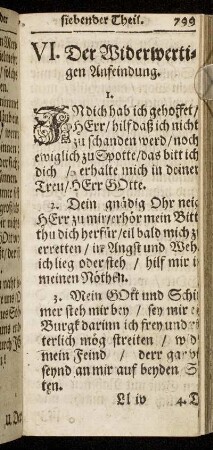 siebender Theil. 799
VI. Der Widerwerti-
gen Anfeindung.
1.
INdich hab ich gehoffet/
HErr/ hilf daß ich nicht
zu schanden werd/ noch
ewiglich zu Spotte/ das bitt ich
dich / erhalte mich in deiner
Treu/ HErr GOtte.
2. Dein gnädig Ohr neig
HErr zu mir/ erhör mein Bitt
thu dich herfür/ eil bald mich z
erretten / in Angst und Weh
ich lieg oder steh / hilf mir i
meinen Nöthen.
3. Mein GOtt und Schi
mer steh mir bey / sey mir e
Burgk darinn ich frey und r
terlich mög streiten / w
mein Feind / derr gar v
seynd an mir auf beyden S
ten.
Ll iv 4. D